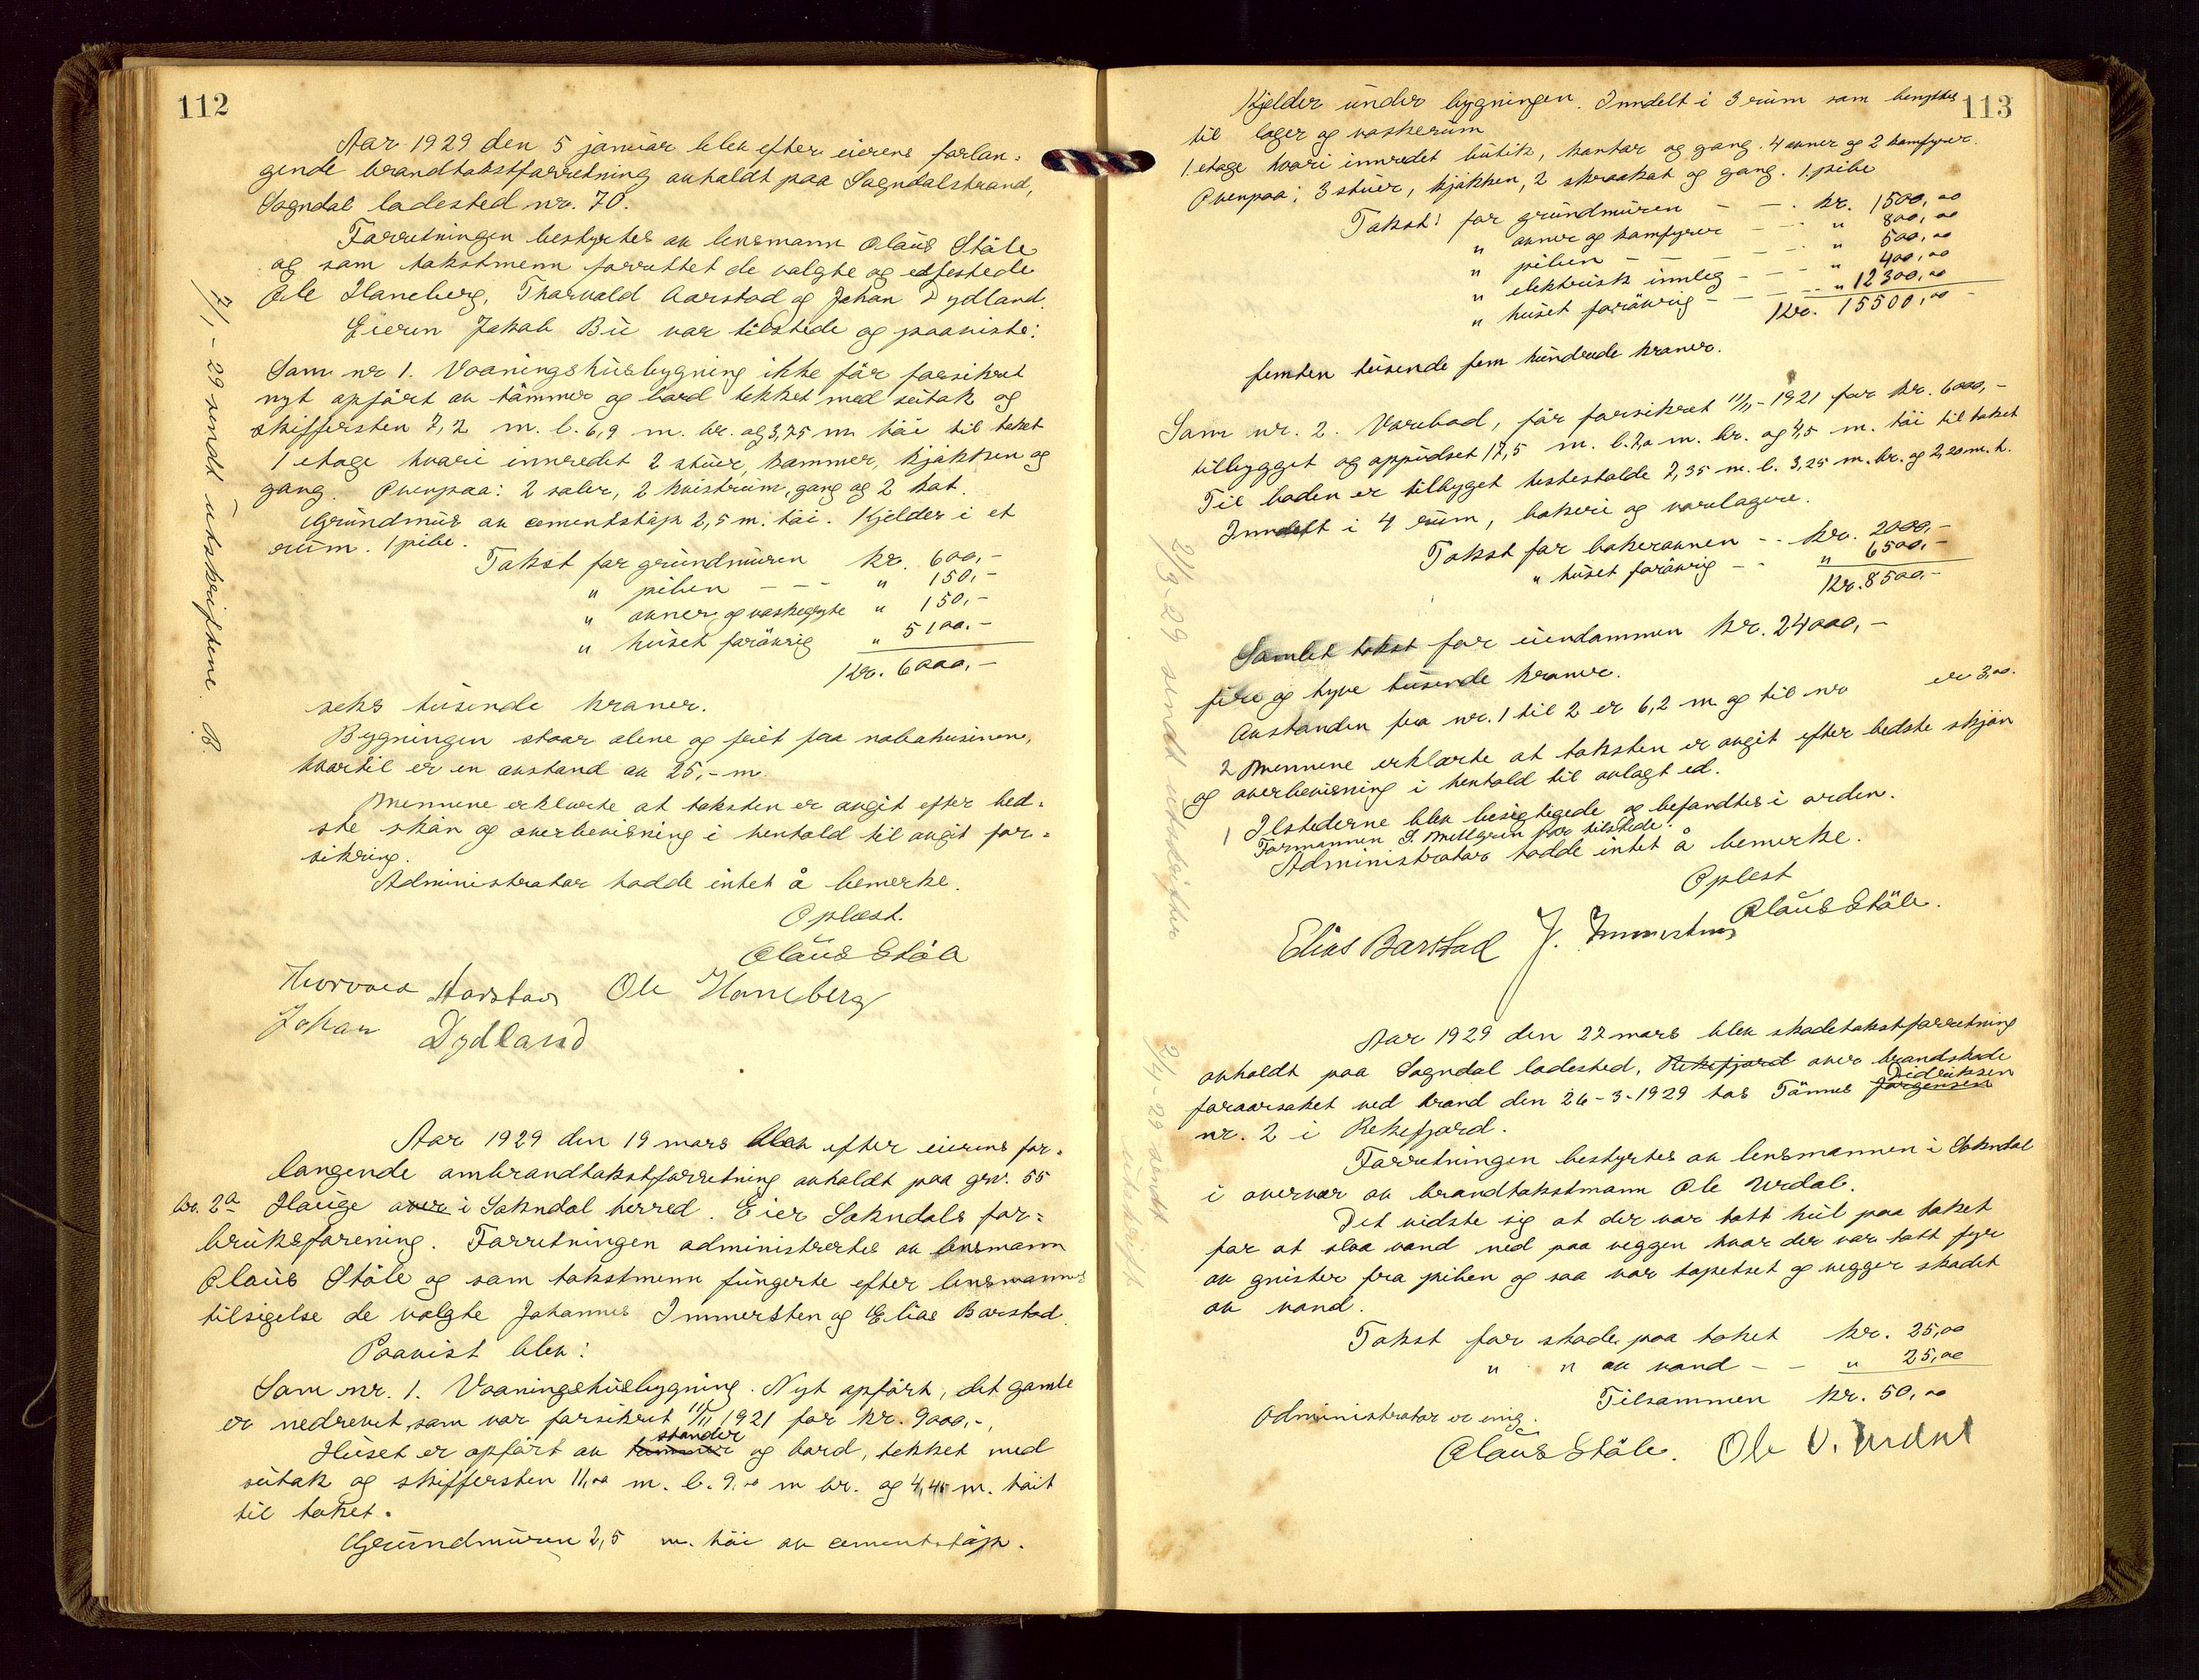 112
Aar 1929 den 5 januar blev efter eierens forlan-
gende brandtakstforretning avholdt paa Sogndalstrand,
Sogndal ladested nr. 70.
Forretningen bestyrtes av lensmann Olaus Ståle
og som takstmenn forrettet de valgte og edfestede
Ole Haneberg, Thorvald Aarstad og Johan Dydland.
Eieren Jakob Bu var tilstede og paaviste:
Som nr 1. Vaaningshusbygning ikke før forsikret
nyt opført av tømmer og bord tekket med sutak og
skiffersten 7,2 m. l. 6,9 m. br. og 3,75 m høi til taket
1 etage hvori innredet 2 stuer, kammer, kjøkken og
gang. Ovenpaa: 2 saler, 2 kvistrum, gang og 2 kot.
Grundmur av cementstøp 2,5 m. høi. Kjelder i et
rum. 1 pibe.
Takst for grundmuren kr. 600,-
" piben - - - " 150,-
" ovner og vaskegryte " 150,-
" huset forøvrig " 5100.-
Kr. 6000,-
seks tusende kroner.
Bygningen staar alene og frit fra nabohusene,
hvortil er en avstand av 25,- m.
Mennene erklærte at taksten er avgit efter bed-
ste skøn og overbevisning i henhold til avgit for-
sikring.
Administrator hadde intet å bemerke.
Oplæst.
Olaus Ståle
Thorvald Aarstad Ole Haneberg
Johan Dydland
7/1 - 29 sendt utskriftene. B
Aar 1929 den 19 mars blev efter eierens for-
langende ombrandtakstforretning avholdt paa grnr. 55
br. 2a Hauge over i Sokndal herred. Eier Sokndals for-
bruksforening. Forretningen administrertes av lensmann
Olaus Ståle og som takstmenn fungerte efter lensmannens
tilsigelse de valgte Johannes Immersten og Elias Barstad.
Paavist blev:
Som nr. 1. Vaaningshusbygning. Nyt opført, det gamle
er nedrevet, som var forsikret 11/11 1921 for kr. 9000,-,
stender
Huset er opført av tømmer og bord, tekket med
sutak og skiffersten 11,00 m. l. 9,00 m br. og 4,40 m. høit
til taket.
Grundmuren 2,5 m. høi av cementstøp.
113
Kjelder under bygningen. Inndelt i 3 rum som benyttes
til lager og vaskerum
1. etage hvori innredet butik, kontor og gang. 4 ovner og 2 komfyrer.
Ovenpaa: 3 stuer, kjøkken, 2 skraakot og gang. 1 pibe
Takst: for grundmuren - - . kr. 1500,00
" ovner og komfyrer - - - " 800,00
" piben - - - - " 500,00
" elektrisk innleg - - - - " 400,00
" huset forøvrig - - - - " 12300,00
Kr. 15500,00
femten tusende fem hundrede kroner.
Som nr. 2. Varebod, før forsikret 11/11-1921 for kr. 6000,-
tilbygget og oppudset 17,5 m. l. 7,0 m. br. og 4,5 m. høi til taket
Til boden er tilbyget hestestalde 7,35 m. l. 3,25 m. br. og 2,20 m. h.
Inndelt i 4 rum, bakeri og varelagere.
Takst for bakerovnen - - kr. 2000,-
" huset forøvrig - - " 6500,-
Kr. 8500,-
Samlet takst for eiendommen kr. 24000,-
fire og tyve tusende kroner.
Avstanden fra nr. 1 til 2 er 6,2 m og til nr er 3,00.
2 Mennene erklærte at taksten er avgit efter bedste skjøn
og overbevisning i henhold til avlagt ed.
1 Ilstederne blev besigtigede og befandtes i orden.
Formannen S. Mellgren var tilstede.
Administrator hadde intet å bemerke.
Oplest
Olaus Ståle.
Elias Barstad J. Immersten
2/3-29 sendt utskrifter
Aar 1929 den 27 mars blev skadetakstforretning
avholdt paa Sogndal ladested, Rekefjord over brandskade
Didriksen
foraarsaket ved brand den 26-3-1929 hos Tønnes Jørgensen
nr. 2 i Rekefjord.
Forretningen bestyrtes av lensmannen i Sokndal
i overvær av brandtakstmann Ole Urdal.
Det vidste sig at der var hått hul paa taket
for at slaa vand ned paa veggen hvor der var tatt fyr
av gnister fra piben og saa var tapetset og vegger skadet
av vand.
Takst for skade paa taket kr. 25,00
" " av vand - - " 25,00
Tilsammen kr. 50,00
Administrator er enig.
Olaus Ståle. Ole O. Urdal
2/4-29 sendt utskrift